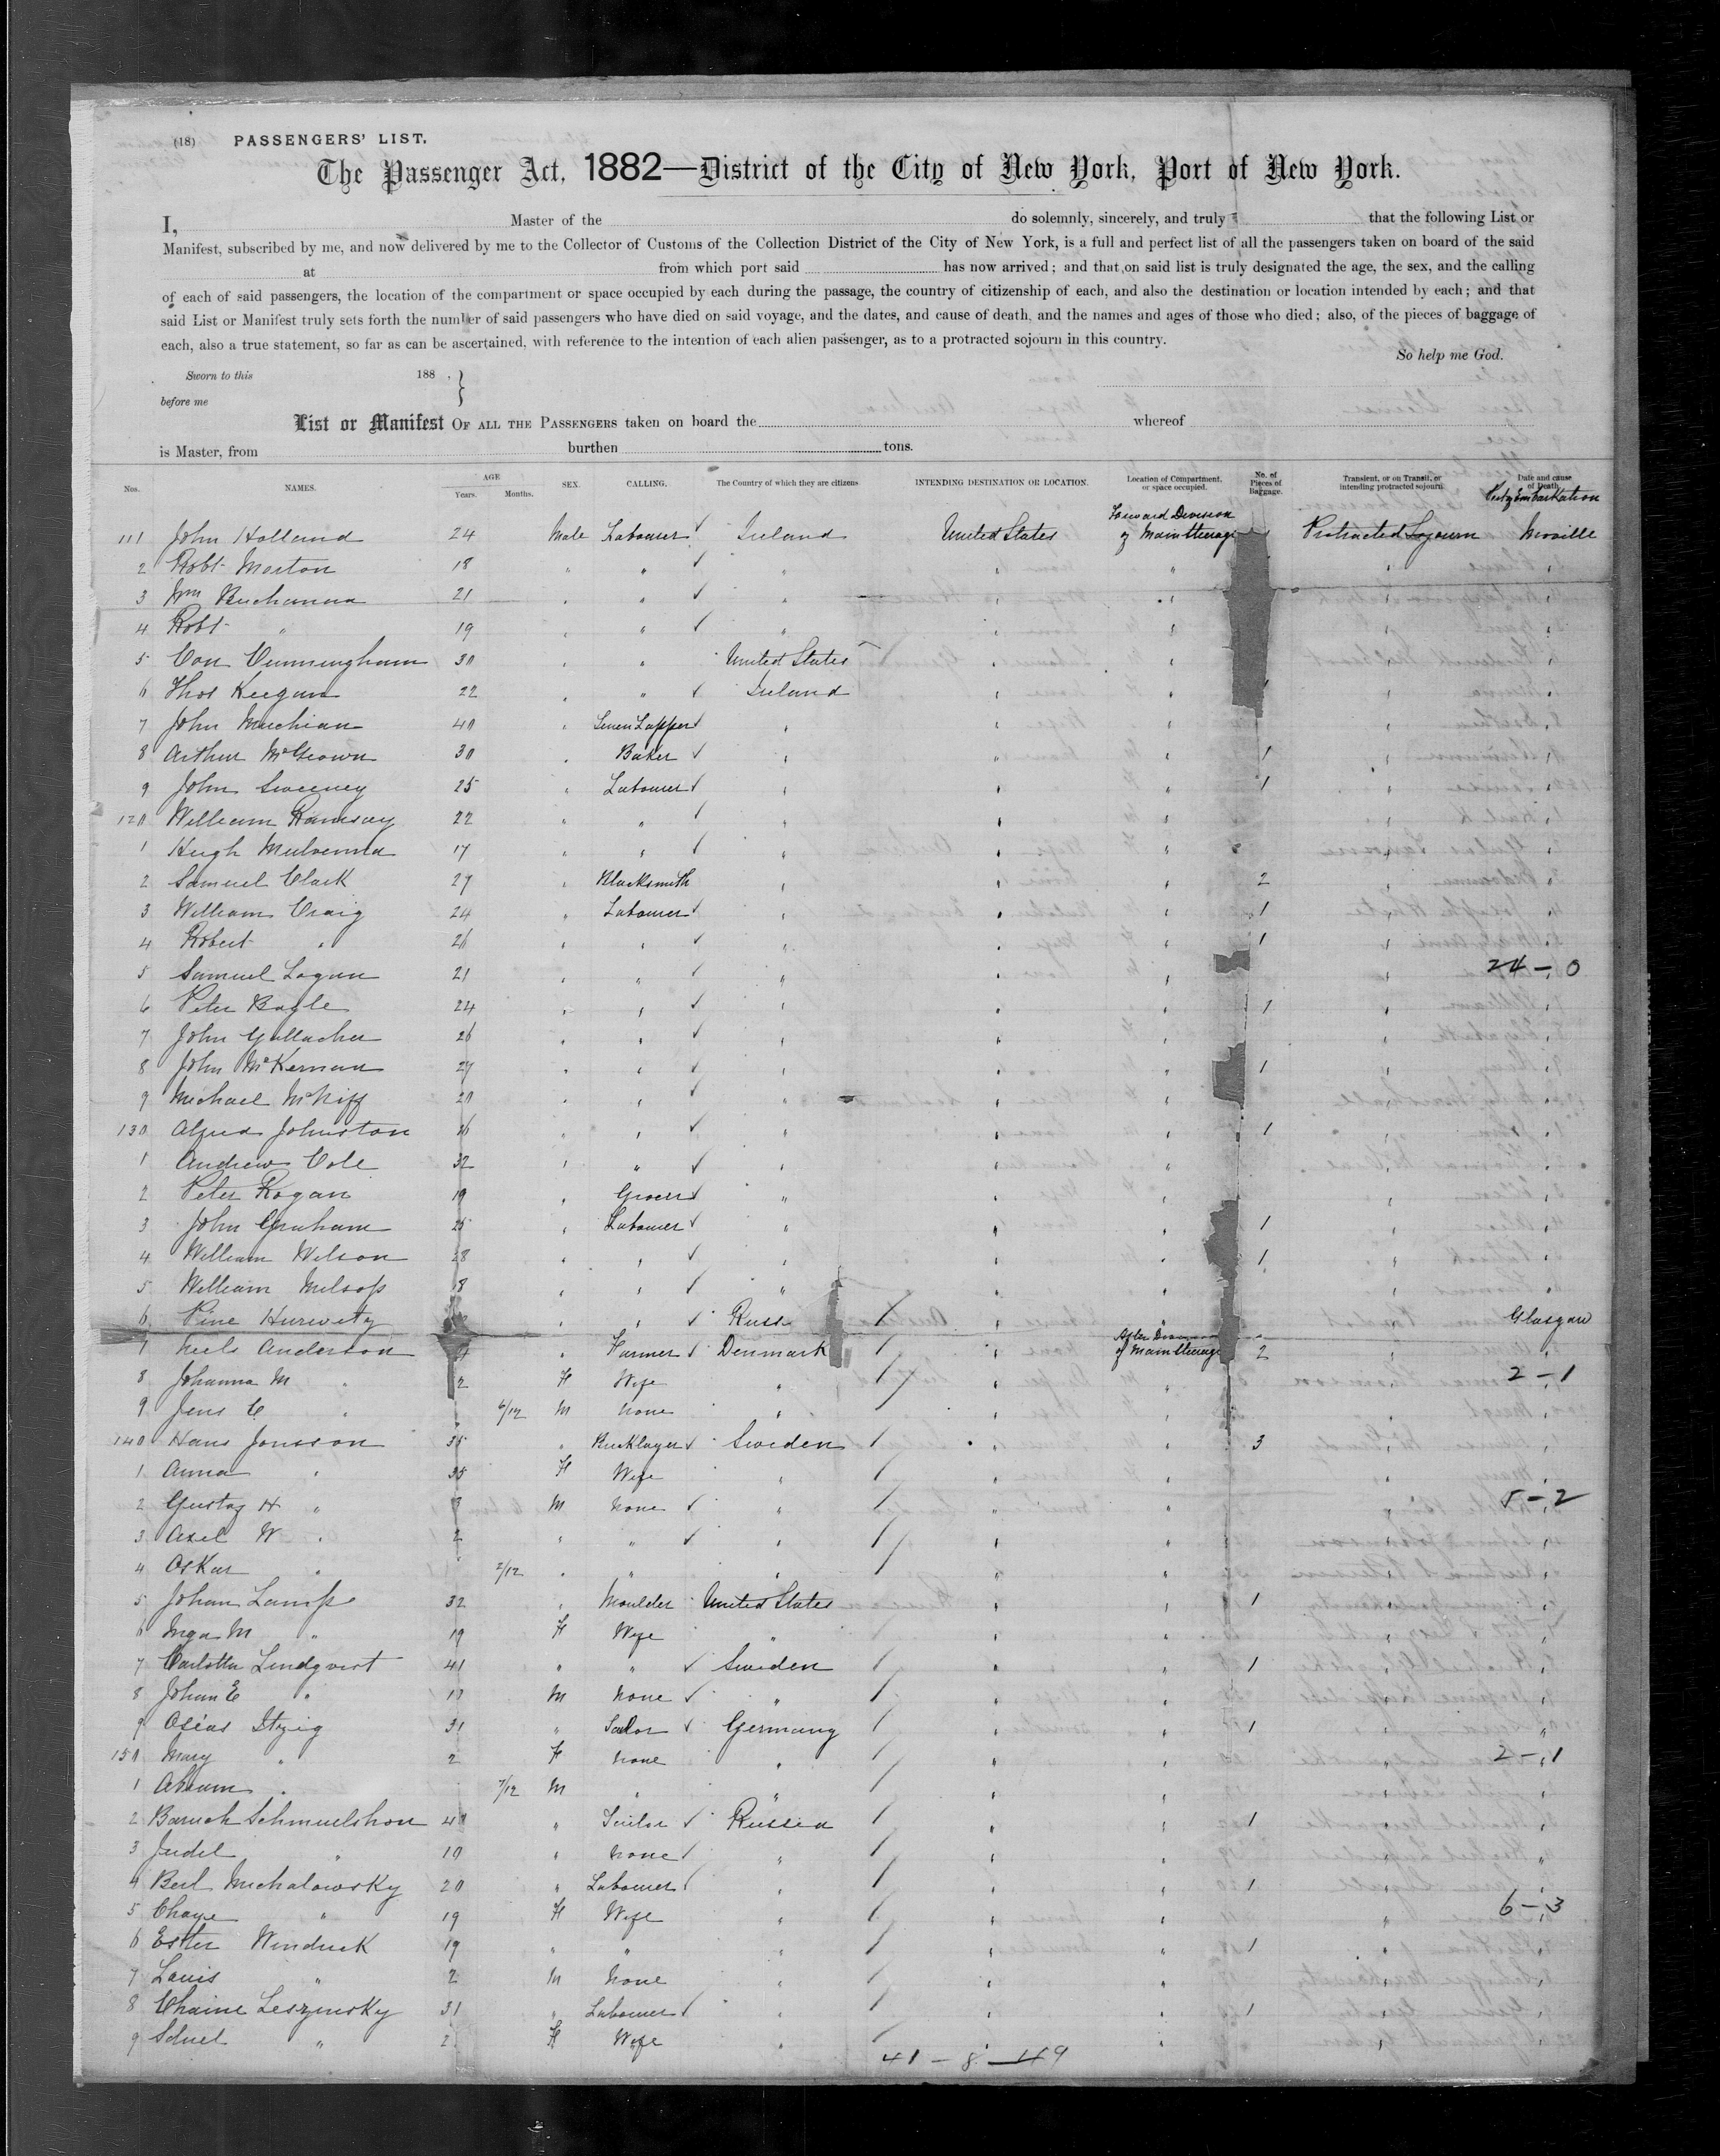 (18) PASSENGERS' LIST.
The Passenger Act, 1882—District of the City of New York, Port of New York.
I, Master of the do solemnly, sincerely, and truly that the following List or
Manifest, subscribed by me, and now delivered by me to the Collector of Customs of the Collection District of the City of New York, is a full and perfect list of all the passengers taken on board of the said
at from which port said has now arrived; and that on said list is truly designated the age, the sex, and the calling
of each of said passengers, the location of the compartment or space occupied by each during the passage, the country of citizenship of each, and also the destination or location intended by each; and that
said List or Manifest truly sets forth the number of said passengers who have died on said voyage, and the dates, and cause of death, and the names and ages of those who died; also, of the pieces of baggage of
each, also a true statement, so far as can be ascertained, with reference to the intention of each alien passenger, as to a protracted sojourn in this country.
So help me God.
Sworn to this 188 .
before me
List or Manifest OF ALL THE PASSENGERS taken on board the whereof
is Master, from burthen tons.
Nos. NAMES. AGE Years. Months. SEX. CALLING. The Country of which they are citizens INTENDING DESTINATION OR LOCATION. Location of Compartment, or space occupied. No. of Pieces of Baggage. Transient, or on Transit, or intending protracted sojourn Date and cause of Death
Port of Embarkation
111 John Holland 24 Male Labourer Ireland United States Forward Division of Main Steerage Protracted Sojourn Moville
2 Robt Morton 18 " " " " " " "
3 Wm Buchanan 21 " " " " " " "
4 Robt " 19 " " " " " " "
5 Con Cunningham 30 " " United States " " " "
6 Thos Keegan 22 " " Ireland " " " "
7 John Meehian 40 " Linen Lapper " " " " "
8 Arthur McGeown 30 " Baker " " " 1 " "
9 John Sweeney 25 " Labourer " " " 1 " "
120 William Ramsay 22 " " " " " " "
1 Hugh Mulvenna 17 " " " " " " "
2 Samuel Clark 27 " Blacksmith " " " 2 " "
3 William Craig 24 " Labourer " " " 1 " "
4 Robert " 26 " " " " " 1 " "
5 Samuel Logan 21 " " " " " " 24 – 0
6 Peter Bogle 24 " " " " " 1 " "
7 John Gallacher 26 " " " " " " "
8 John McKernan 27 " " " " " 1 " "
9 Michael McNiff 20 " " " " " " "
130 Alfred Johnston " " " " " 1 " "
1 Andrew Cole 32 " " " " " " "
2 Peter Rogan 19 " Grocer " " " " "
3 John Graham 25 " Labourer " " " 1 " "
4 William Wilson 28 " " " " " 1 " "
5 William Melsop " " " " " " "
6 Pine Hurwitz " " Russ " " Glasgow
7 Neils Anderson " Farmer Denmark " After Division of Main Steerage 2 " "
8 Johanna M " F Wife " " " " 2 – 1
9 Jens C " 6/12 M None " " " " "
140 Hans Jonsson 35 " Bricklayer Sweden " " 3 " "
1 Anna " 35 F Wife " " " " "
2 Gustaf H " M None " " " " 5 – 2
3 Axel W " 2 " " " " " " "
4 Oskar " 2/12 " " " " " " "
5 Johan Lamp 32 " Moulder United States " " 1 " "
6 Inga M " 19 F Wife " " " " "
7 Carlotta Lindqvist 41 " " Sweden " " 1 " "
8 Johan E " 10 M None " " " " "
9 Osias Itzig 31 " Tailor Germany " " 1 " "
150 Mary " 2 F None " " " " 2 – 1
1 Abraum " 7/12 M " " " " " "
2 Baruch Schmuelshon 40 " Tailor Russia " " 1 " "
3 Judel " 10 " None " " " " "
4 Berl Michalowsky 20 " Labourer " " " 1 " "
5 Chaye " 19 F Wife " " " " 6 – 3
6 Ester Winduck 19 " " " " " 1 " "
7 Louis " 2 M None " " " " "
8 Chaine Leszinsky 31 " Labourer " " " 1 " "
9 " F Wife " " " " "
41 – 8 – 49